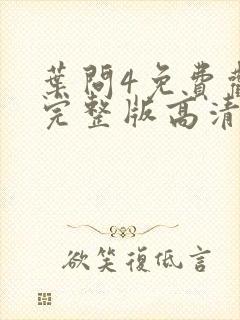 葉問4免費
完整版高清
欲笑復低言